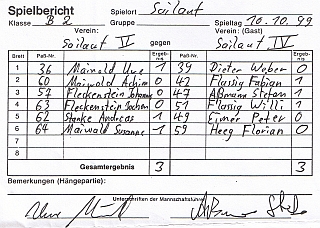 Spielbericht Spielort Sailauf
Klasse B2 Gruppe Spieltag 10.10.99
Verein: Verein: (Gast)
Sailauf V gegen Sailauf IV
Brett Paß-Nr. Ergebnis Paß-Nr. Ergebnis
1 36 Maiwald Uwe 1 39 Dieter Weber 0
2 60 Maiwald 0 42 Flassig Fabian 1
3 57 Fleckenstein Johannes 0 47 Aßmann Stefan 1
4 63 Fleckenstein Jochen 0 51 Flassig Willi 1
5 62 Stanke Andreas 1 49 Eimer Peter 0
6 64 Maiwald Susanne 1 59 Heeg Florian 0
7
8
Gesamtergebnis 3 3
Bemerkungen (Hängepartie):
Unterschriften der Mannschaftsführer